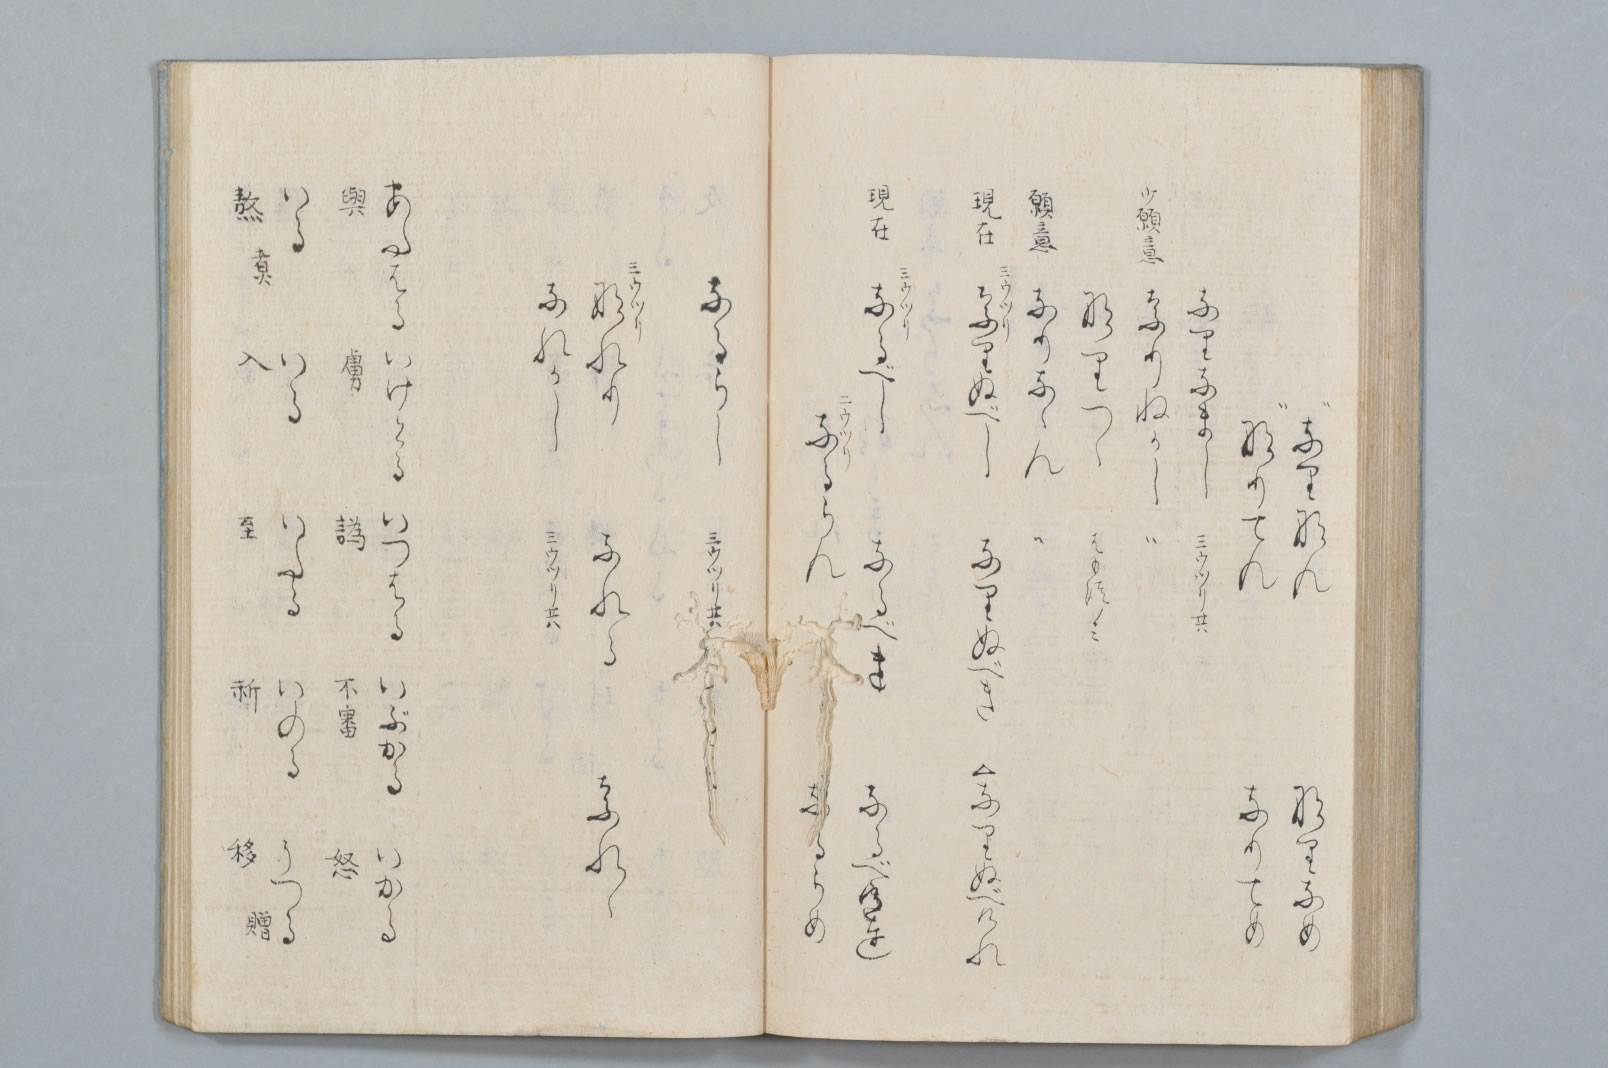 〃なり那ん　那りなめ
〃那りてん　なりてめ
なりなまし　三ウツリ共
少願意　なりねかし　〃
那りつゝ
願意　なりなゝん　〃
現在　三ウツリ　なりぬべし　なりぬべき　△なりぬべけれ
現在　三ウツリ　なるべし　なるべき　なるべければ
二ウツリ　なるらん　なるらめ
なるらし　三ウツリ共
三ウツリ　那れり　なれる　なれゝ
なれかし　三ウツリ共
あたはる　いけとる　いつはる　いぶかる　いかる
與　虜　譌　不審　怒
いる　いる　いたる　いのる　うつる
熬　煎　入　至　祈　移　贈